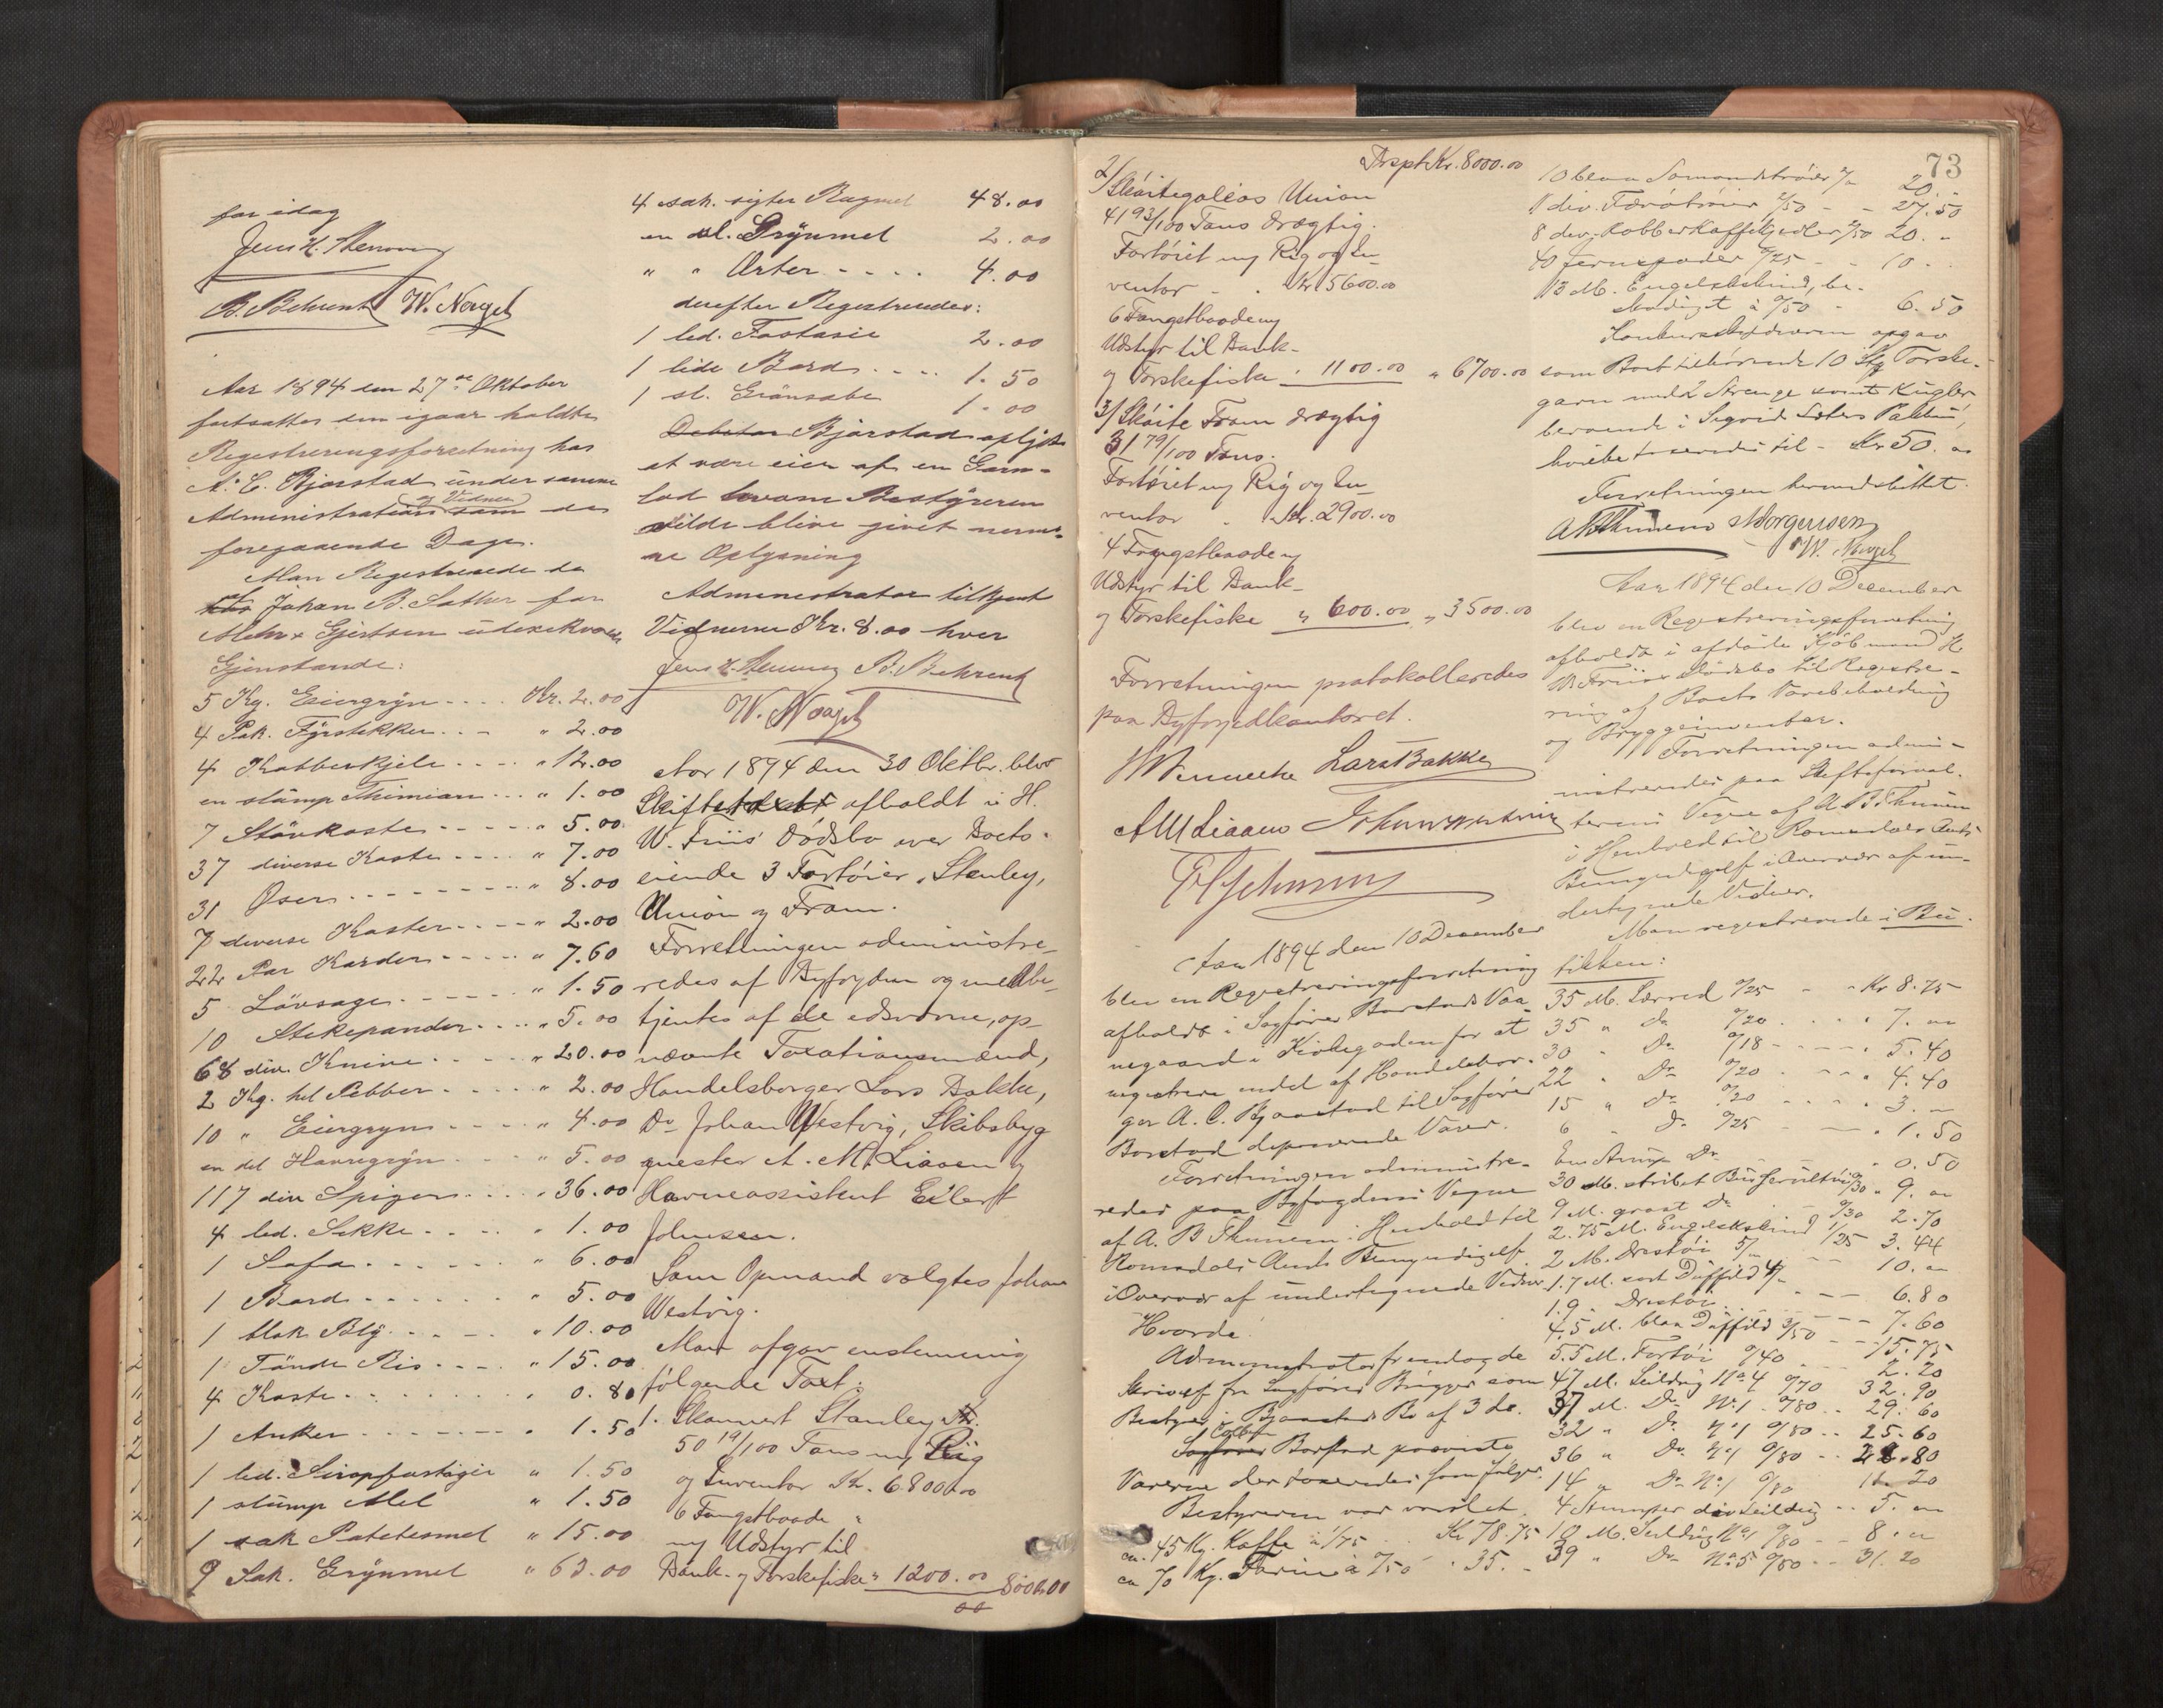 for idag
Jens H.
B. Behrent W. Nergel
Aar 1894 den 27de Oktober
fortsattes den igaar holdte
Registreringsforretning hos
A. C. Bjørstad under samme
Administration og Vidner som den
foregaaende Dage.
Man Registrerede da
Johan B. Sather for
Gjertsen
Gjenstande:
5 Kg. Eiergryn .... Kr. 2.00
4 Pak. Fyrstikker .. - " 2.00
4 Kobberkjele .... " 12.00
en stump Thimian ... " 1.00
7 Støvkoste - - - - - " 5.00
37 diverse Koste - - - - " 7.00
31 Øser - - - - - - - " 8.00
7 diverse Koster - - - - " 2.00
22 Par Karder - - - - " 7.60
5 Løvsage - - - - - " 1.50
10 Stekepander .... " 5.00
68 div. Knive - - - - " 20.00
2 Kg. hel Pebber - - - - " 2.00
10 " Eiergryn - - - - " 4.00
en del Havregryn - - - " 5.00
117 div Spiger .... " 36.00
4 led. Sekke - - - - " 1.00
1 Sofa - - - - - - " 6.00
1 Bord - - - - - - " 5.00
1 blok Bly - - - - " 10.00
1 Tønde Ris - - - - " 15.00
4 Koste - - - - - - " 0.80
1 Anker - - - - - - " 1.50
1 led. Siropfustagie " 1.50
1 stump Mel " 1.50
1 sæk Potetesmel " 15.00
9 Sæk. Grynmel " 63.00
4 sæk. sigtet Rugmel 48.00
en del. Grynmel 2.00
" " Erter - - - - 4.00
derefter Registreredes:
1 led. Fustasie 2.00
1 lide Bord .... 1.50
1 st. Grønsabe 1.00
Debitor Bjørstad oplyste
at være eier af en
lod hvorom Bestyreren
vilde blive givet nærme-
re Oplysning
Administrator tilkjent
Vidnerne Kr. 8.00 hver
Jens H. B. Behrent
W. Nergel
Aar 1894 den 30 Oktbr. blev
Skiftetaxt afholdt i H.
W. Friis' Dødsbo over Boets
eiende 3 Fartøier, Stanley,
Union og Fram.
Forretningen administre-
redes af Byfogden og medbe-
tjentes af de edsvorne, op-
nævnte Taxationsmænd,
Handelsborger Lars Bakke,
Do Johan Westvig, Skibsbyg
mester A. M. Liaaen og
Havneassistent Eilert
Johnsen.
Som Opmand valgtes Johan
Westvig.
Man afgav enstemmig
følgende Taxt:
1. Skonnert Stanley Dr.
50 19/100 Tons m/ Rig
og Inventar Kr. 6800.00
6 Fangstbaade
m/ Udstyr til
Bank- og Torskefiske " 1200.00 8000.00
00
73
Trspt Kr. 8000.00
2/ Skøitegalias Union
41 93/100 Tons drægtig.
Fartøiet m/ Rig og In-
ventar - . Kr 5600.00
6 Fangstbaade m/
Udstyr til Bank-
og Torskefiske " 1100.00 " 6700.00
3/ Skøite Fram drægtig
31 79/100 Tons.
Fartøiet m/ Rig og In-
ventar . Kr. 2900.00
4 Fangstbaade m/
Udstyr til Bank-
og Torskefiske " 600.00 " 3500.00
Forretningen protokolleredes
paa Byfogedkontoret.
Lars Bakke
A M Liaaen Johan Westvig
E Johnsen
Aar 1894 den 10 December
blev en Registreringsforretning
afholdt i Sagfører Borstads Vaa
negaard i Kirkegaden for at
registrere endel af Handelsbor-
ger A. C. Bjaastad til Sagfører
Borstad deponerede Varer.
Forretningen administre-
redes paa Byfogdens Vegne
af A. B Thunem i Henhold til
Romsdals Amts Bemyndigelse
i Overvær af undertegnede Vidner.
Hvorda:
Administrator fremlagde
Skrivelse fra Sagfører Brygger som
Bestyrer i Bjaastads Bo af 3 ds.
Sagfører Borstad paaviste
Varerne der taxeredes som følger.
Bestyreren var varslet.
ca. 45 Kg. Kaffe à 1/75 . Kr 78.75
ca 70 Kg. Farin à 0/50 " 35. -
10 blaa 2/- 20.
11 div. 2/50 - - 27.50
8 div. Kobberkaffekjedler 2/50 20. -
40 Jernspader 0/25 - - 10 -
13 M. Engelskskind, be-
skadiget à 0/50 - 6.50
opgav
som Boet tilhørende 10 Stk Torske-
garn med 2 Strenge samt Kugler
beroende i Sigvard Pakbu,
hvilke taxeredes til - Kr 50. 00
Forretningen hermed sluttet.
A B Thunem Morgensen
W. Nergel
Aar 1894 den 10 December
blev en Registreringsforretning
afholdt i afdøde Kjøbmand H
W Friis Dødsbo til Registre-
ring af Boets Varebeholdning
og Bryggeinventar.
Forretningen admini-
nistreredes paa Skifteforval-
terens Vegne af A. B. Thunem
i Henhold til Romsdals Amts
Bemyndigelse i Overvær af un-
dertegnede Vidner.
Man registrerede i Bu-
tikken:
35 M. Lærred 0/25 - " Kr 8.75
35 " Do 0/20 . . . " 7. 00
30 " Do 0/18 - - - " 5.40
22 " Do 0/20 . - - " 4.40
15 " Do 0/20 . . . " 3. -
6 " Do 0/25 - - " 1.50
En Stump Do " 0.50
30 M. stribet 0/30 " 9. 00
9 M. graat Do - 0/30 2.70
2.75 M. Engelskskind 1/25 3.44
2 M. Drestøi 5/- - - 10. 00
1.7 M. sort Düffild 4/- - - 6.80
1.9 " Drestøi - - - - 7.60
4.5 M. blaa Düffild 3/50 - - 15.75
5.5 M. Fortøi 0/40 - - 2.20
47 M. Seildug No 4 0/70 32.90
37 M. Do No 1 0/80 .. 29.60
32 " Do No 1 0/80 .. 25.60
36 " Do No 1 0/80 .. 28.80
14 " Do No 1 0/80 11.20
4 Stumper div Seildug .. 5. 00
10 M. Seildug No 1 0/80 - - 8. 00
39 " Do No 5 0/80 - - 31.20